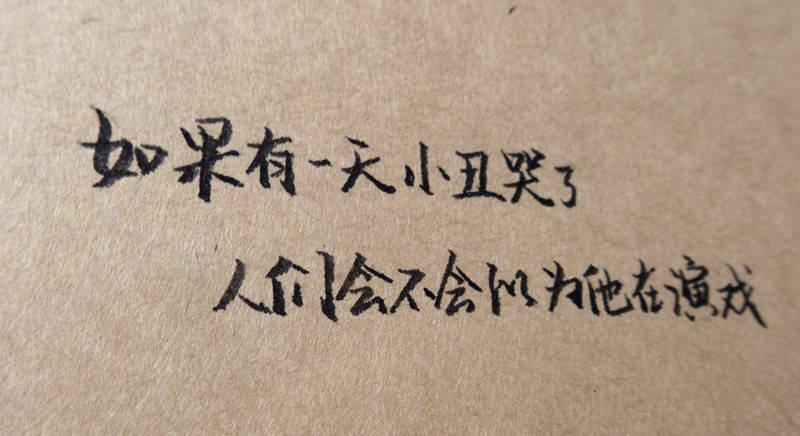 如果有一天小丑哭了
人们会不会以为他在演戏